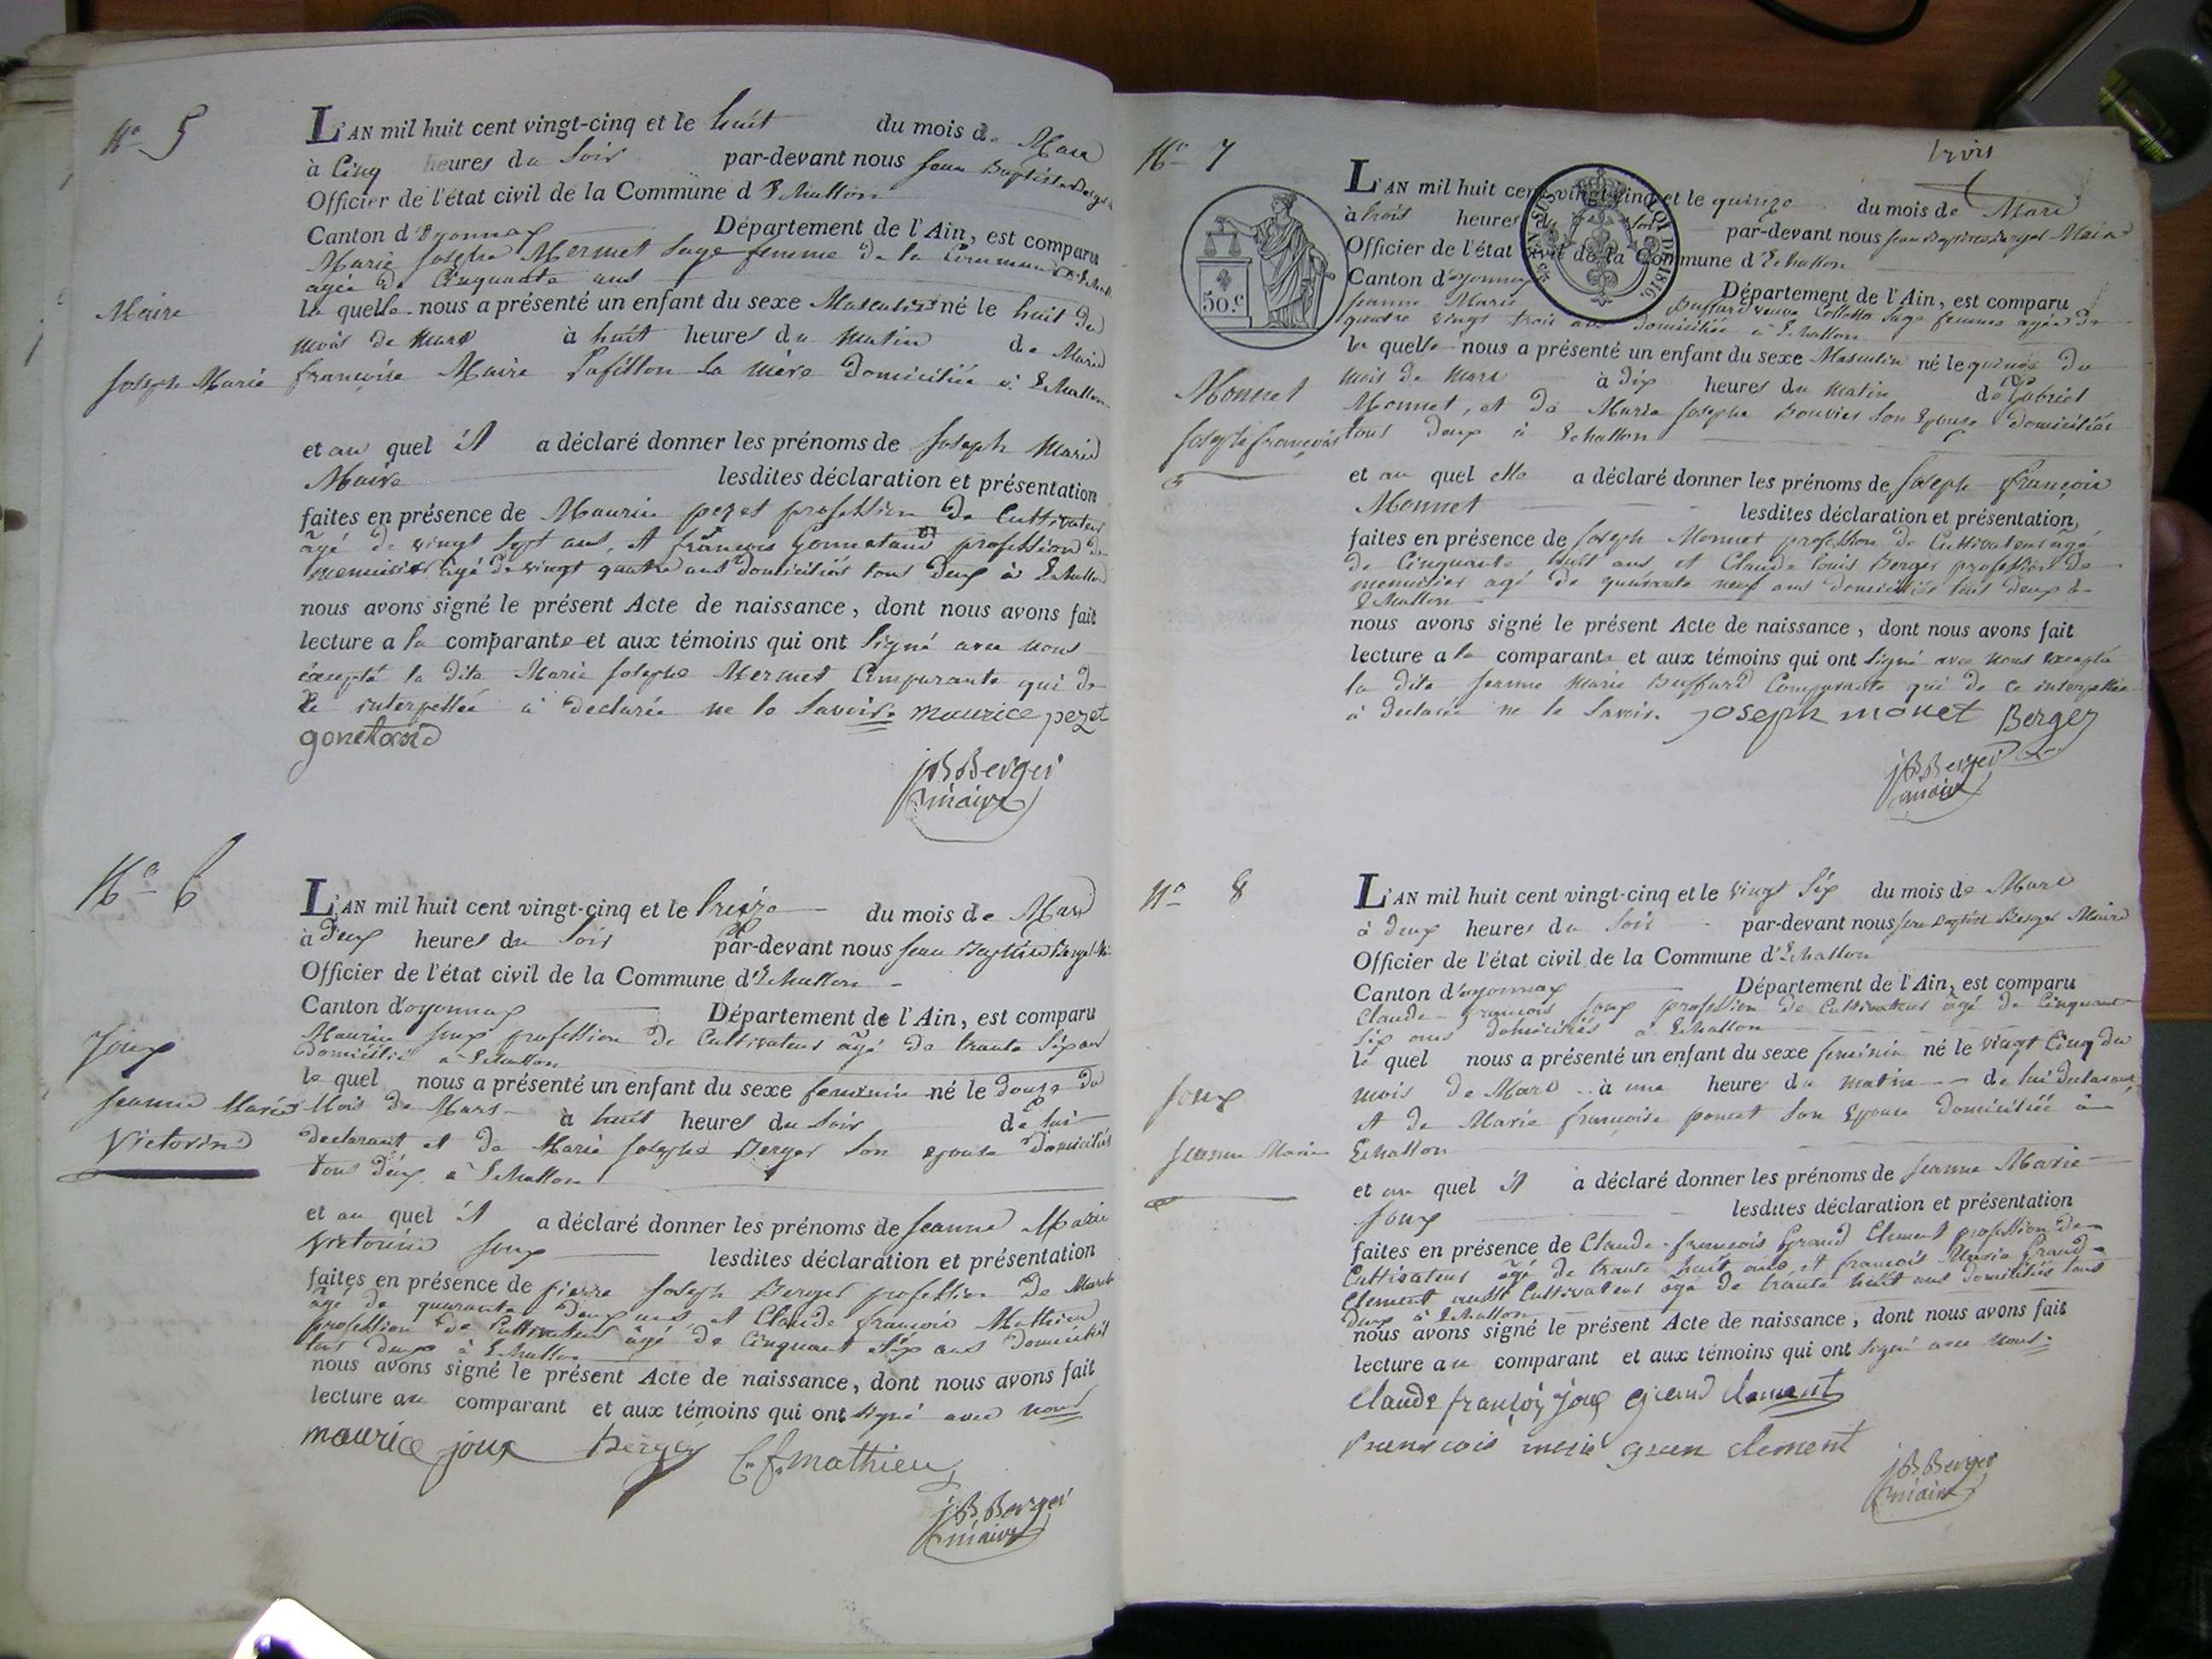 N° 5
L'AN mil huit cent vingt-cinq et le huit du mois de Mars
à Cinq heures du Soir par-devant nous Jean Baptiste Berger
Officier de l'état civil de la Commune d'Echallon
Canton d'oyonnax Département de l'Ain, est comparu
Marie Josephe Mermet Sage femme de la Commune d'Echallon
agée de Cinquante ans
la quelle nous a présenté un enfant du sexe Masculin né le huit du
Maire
mois de mars à huit heures du Matin de Marie
Joseph Marie
françoise Maire la mère domiciliée à Echallon
et au quel il a déclaré donner les prénoms de Joseph Marie
Maire lesdites déclaration et présentation
faites en présence de Maurice pezet profession de Cultivateur
âgé de vingt sept ans, et françois Gonnetand profession de
menuisier âgé de vingt quatre ans domiciliés tous deux à Echallon
nous avons signé le présent Acte de naissance, dont nous avons fait
lecture a la comparante et aux témoins qui ont Signé avec nous
éxcepté la dite Marie Josephe Mermet Comparante qui de
ce interpellée à declarée ne le Savoir. maurice pezet
gonetand
jB Berger
maire
N° 6
L'AN mil huit cent vingt-cinq et le treize du mois de Mars
à deux heures du Soir par-devant nous Jean Baptiste Berger
Officier de l'état civil de la Commune d'Echallon
Canton d'oyonnax Département de l'Ain, est comparu
Maurice Joux profession de Cultivateur âgé de trante Six ans
domicilié à Echallon
Joux
le quel nous a présenté un enfant du sexe feminin né le douze du
Jeanne Marie
Mois de Mars à huit heures du Soir de lui
Victorine
declarant et de Marie Josephe Berger Son epouse domiciliés
tous deux à Echallon
et au quel il a déclaré donner les prénoms de Jeanne Marie
Victorine Joux lesdites déclaration et présentation
faites en présence de pierre Joseph Berger profession de
âgé de quarante deux ans, et Claude françois Mathieu
profession de Cultivateur âgé de Cinquant Six ans domiciliés
tous deux à Echallon
nous avons signé le présent Acte de naissance, dont nous avons fait
lecture au comparant et aux témoins qui ont signé avec nous
maurice joux Berger C. f. mathieu
jB Berger
maire
trois
N° 7
L'AN mil huit cent vingt-cinq et le quinze du mois de Mars
à trois heures du Soir par-devant nous Jean Baptiste Berger Maire
Officier de l'état civil de la Commune d'Echallon
Canton d'oyonnax Département de l'Ain, est comparu
50 c.
LOI DE 1816.
Jeanne Marie Buffard veuve Collette Sage femme agée de
quatre vingt trois ans domiciliée à Echallon
la quelle nous a présenté un enfant du sexe Masculin né le quinze du
mois de mars à dix heures du matin de Gabriel
Monnet
Monnet, et de Marie Josephe Bouvier Son Epouse domiciliés
Joseph françois
tous deux à Echallon
et au quel elle a déclaré donner les prénoms de Joseph françois
Monnet lesdites déclaration et présentation,
faites en présence de Joseph Monnet profession de Cultivateur âgé
de Cinquante huit ans, et Claude louis Berger profession de
menuisier agé de quarante neuf ans domiciliés tous deux à
Echallon
nous avons signé le présent Acte de naissance, dont nous avons fait
lecture a la comparante et aux témoins qui ont signé avec nous excepté
la dite Jeanne Marie Buffard Comparante qui de ce interpellée
à declarée ne le Savoir. joseph monet Berger
jB Berger
maire
N° 8
L'AN mil huit cent vingt-cinq et le vingt Six du mois de Mars
à deux heures du Soir par-devant nous Jean Baptiste Berger Maire
Officier de l'état civil de la Commune d'Echallon
Canton d'oyonnax Département de l'Ain, est comparu
Claude françois Joux profession de Cultivateur âgé de Cinquante
Six ans domiciliés à Echallon
le quel nous a présenté un enfant du sexe feminin né le vingt Cinq du
Joux
mois de Mars à une heure du matin de lui declarant,
et de Marie françoise poncet Son Epouse domiciliée à
Jeanne Marie
Echallon
et au quel il a déclaré donner les prénoms de Jeanne Marie
Joux lesdites déclaration et présentation
faites en présence de Claude françois Grand Clement profession de
Cultivateur âgé de trante huit ans, et françois Marie Grand
Clement aussi Cultivateur agé de trante huit ans domiciliés tous
deux à Echallon
nous avons signé le présent Acte de naissance, dont nous avons fait
lecture au comparant et aux témoins qui ont signé avec nous.
Claude françoi joux grand clement
francois merie gran clement
jB Berger
maire